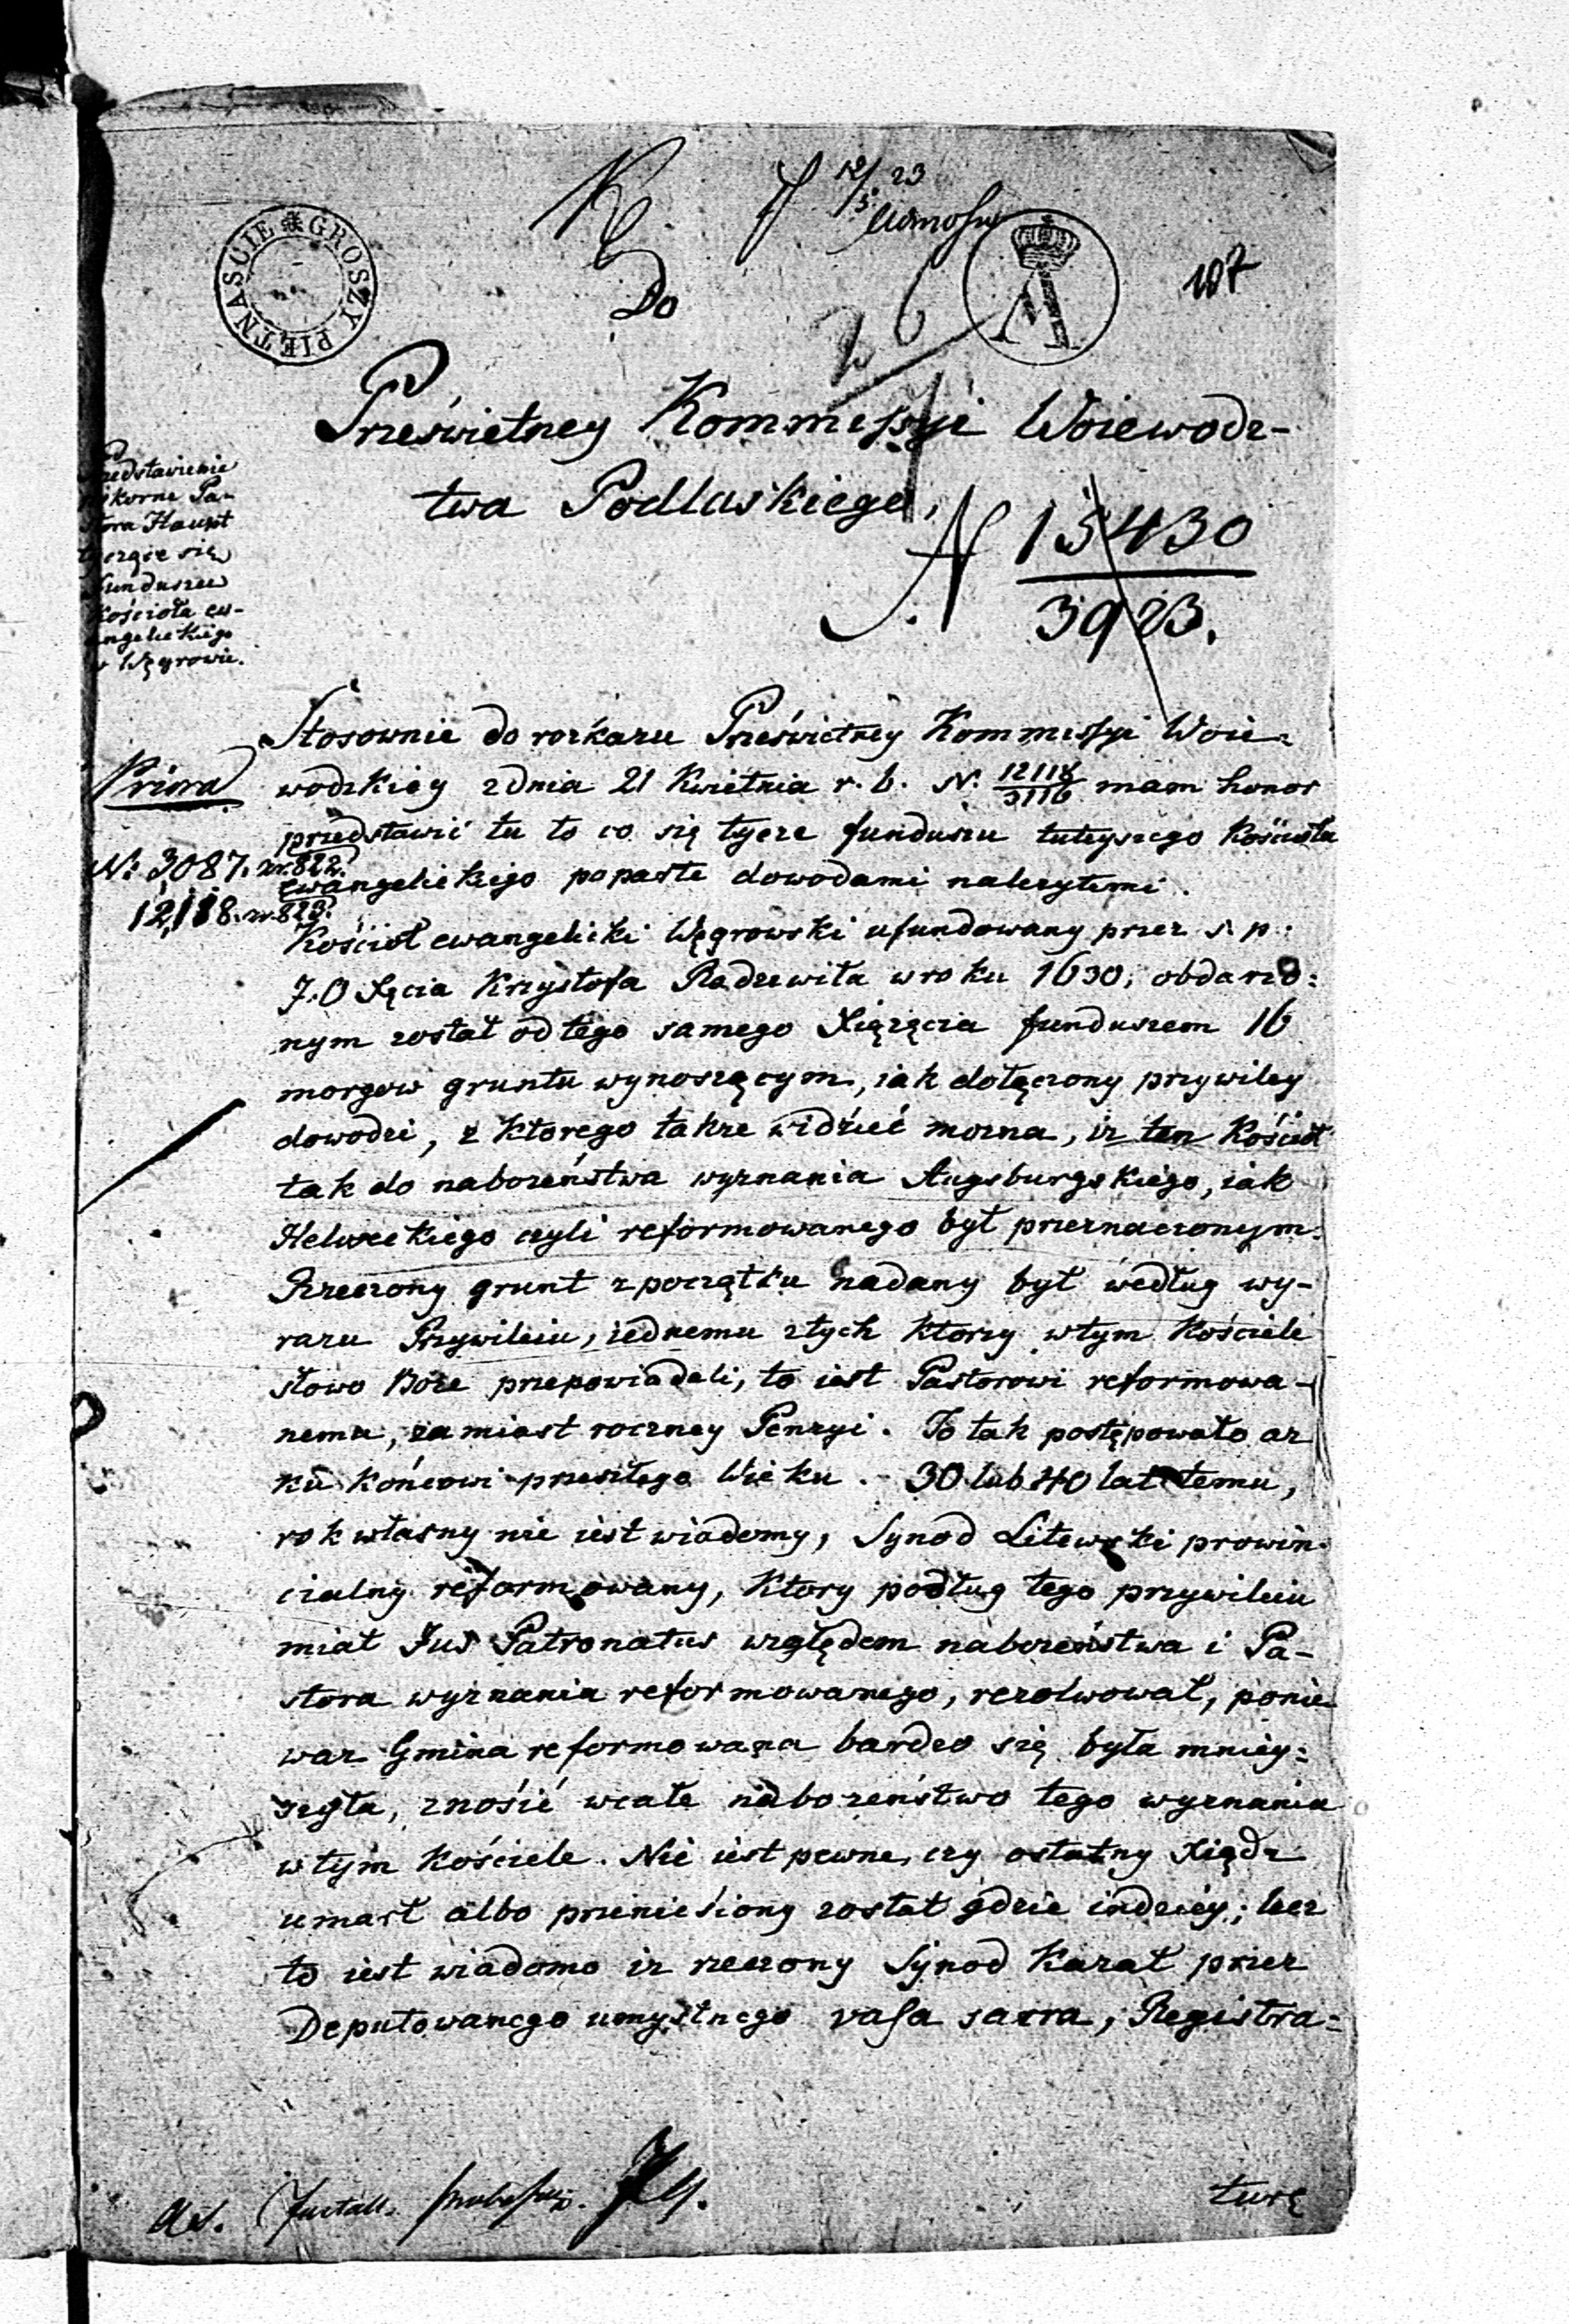 12/5 23
GROSZY PIĘTNAŚCIE
107
Do
26
Prześwietney Kommissyi Woiewodz-
twa Podlaskiego,
N 15430
3923.
przedstawienie
pokorne Pa-
stora Haupt
tyczące się
funduszu
Kościoła ew-
angelickiego
w Węgrowie.
Priora
N: 3087. zr. 822.
12,118. zr. 823.
Stosownie do rozkazu Prześwietney Kommissyi Woie-
wodzkiey z dnia 21 Kwietnia r. b. N. 12118/3116 mam honor
przedstawić tu to co się tycze funduszu tuteyszego Kościoła
ewangelickiego poparte dowodami należytemi.
Kościoł ewangelicki Węgrowski ufundowany przez s. p.
J. O Xęcia Krzysztofa Radziwiła w roku 1630, obdarzo:
nym został od tego samego Xiążęcia funduszem 16
morgow gruntu wynoszącym, iak dołączony przywiley
dowodzi, z ktorego także widzieć można, iż ten Kościoł
tak do nabożeństwa wyznania Augsburgskiego, iak
Helweckiego czyli reformowanego był przeznaczonym.
Rzeczony grunt z początku nadany był według wy-
razu Przywileiu, iednemu z tych ktorzy w tym Kościele
słowo Boże przepowiadali, to iest Pastorowi reformowa-
nemu, zamiast roczney Penzyi. To tak postępowało aż
ku końcowi przeszłego Wieku. 30 lub 40 lat temu,
rok własny nie iest wiadomy, Synod Litewski prowin-
cialny reformowany, ktory podług tego przywileiu
miał Jus Patronatus względem nabożeństwa i Pa-
stora wyznania reformowanego, rezolwował, ponie
waż Gmina reformowana bardzo się była mniey:
szyła, znosić wcale nabożeństwo tego wyznania
w tym Kościele. Nie iest pewne, czy ostatny Xiądz
umarł albo przeniesiony został gdzie indziey; lecz
to iest wiadomo iż rzeczony Synod kazał przez
Deputowanego umyślnego vasa sacra, Registra-
turę